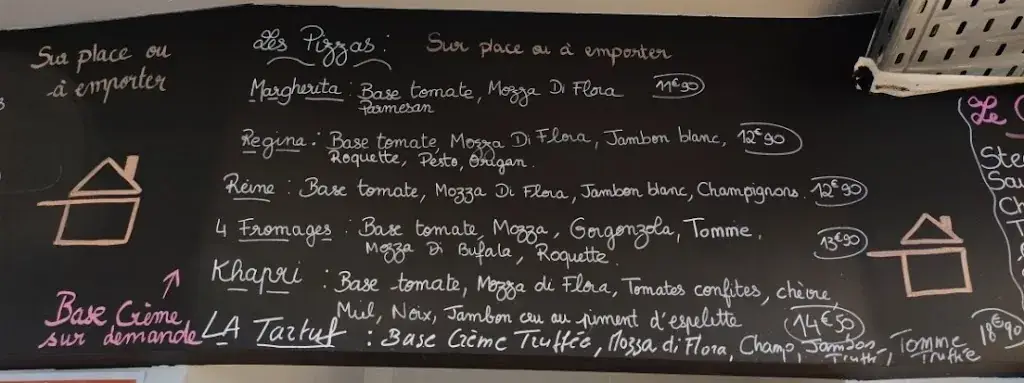 Sur place ou
à emporter
Les Pizzas : Sur place ou à emporter
Margherita : Base tomate, Mozza Di Flora 11€90
Parmesan
Regina : Base tomate, Mozza Di Flora, Jambon blanc, 12€90
Roquette, Pesto, Origan.
Reine : Base tomate, Mozza Di Flora, Jambon blanc, Champignons. 12€90
4 Fromages : Base tomate, Mozza, Gorgonzola, Tomme, 13€90
Mozza Di Bufala, Roquette.
Khapri : Base tomate, Mozza di Flora, Tomates confites, chèvre,
Miel, Noix, Jambon cru au piment d'espelette 14€50
LA Tartuf : Base Crème Truffée, Mozza di Flora, Champ, Jambon Truff, Tomme Truffée 18€90
Base Crème
sur demande
Le